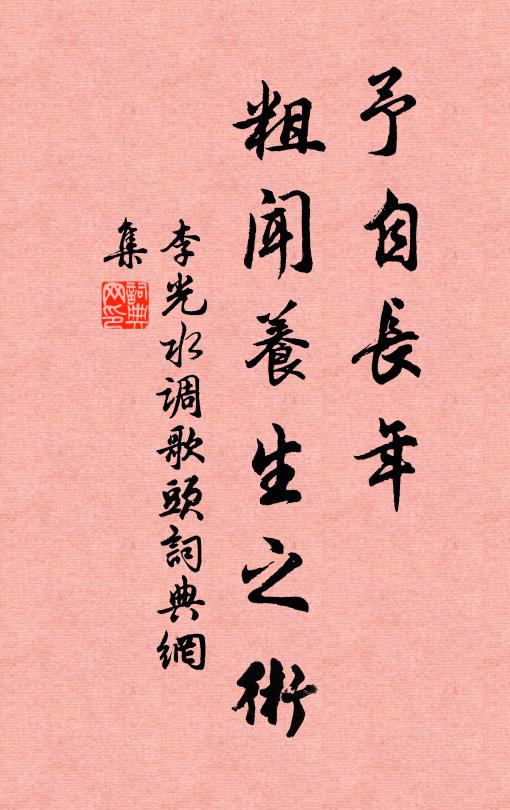 予自長年
粗聞養生之術
李光水调歌頭詞典網
集
詞典
网印